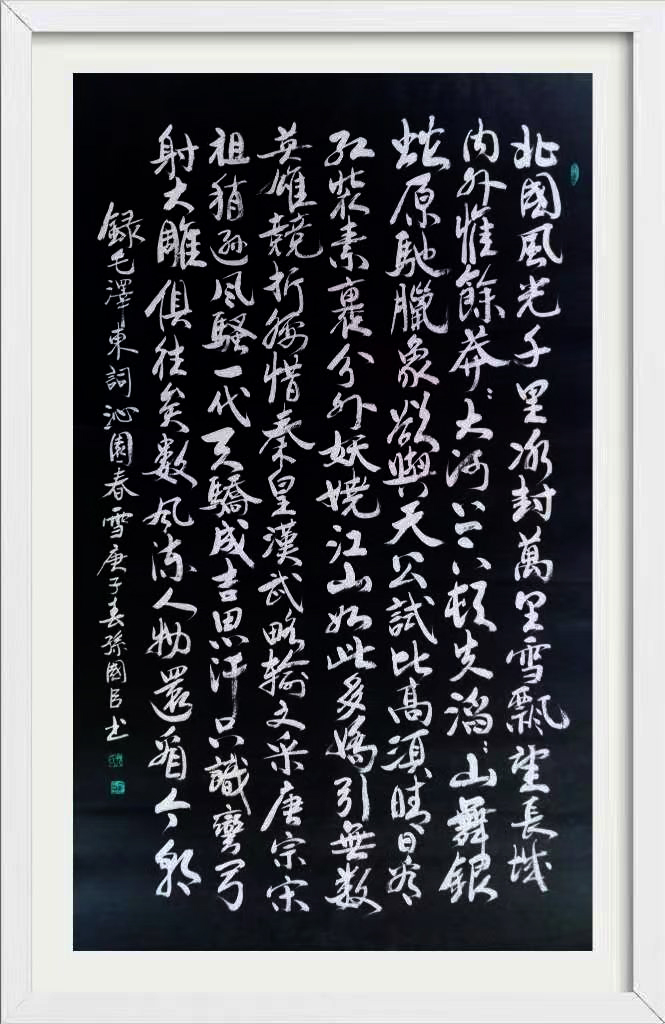 北國風光千里冰封萬里雪飄望長城
内外惟餘莽〻大河上下頓失滔〻山舞銀
蛇原馳臘象欲與天公試比高須晴日看
红裝素裹分外妖嬈江山如此多嬌引無数
英雄競折腰惜秦皇漢武略輸文采唐宗宋
祖稍遜风騷一代天驕成吉思汗只識彎弓
射大雕俱往矣數风流人物還看今朝
録毛澤東詞沁園春雪庚子春孫國臣书